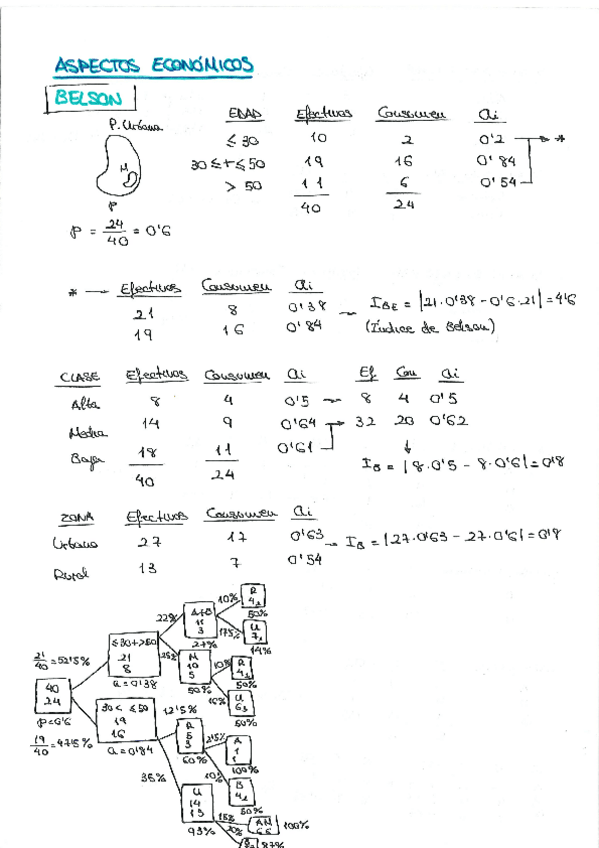 ASPECTOS ECONÓMICOS
BELSON
P. Urbana
M
P
P = 24/40 = 0'6
EDAD Efectivos Consumen ai
≤ 30 10 2 0'2 *
30 ≤ + ≤ 50 19 16 0'84
> 50 11 6 0'54
40 24
* Efectivos Consumen ai
21 8 0'38
19 16 0'84
I BE = |21·0'38 - 0'6·21| = 4'6
(Índice de Belson)
CLASE Efectivos Consumen ai Ef Con ai
Alta 8 4 0'5 8 4 0'5
Media 14 9 0'64 32 20 0'62
Baja 18 11 0'61
40 24
IB = |8·0'5 - 8·0'6| = 0'8
ZONA Efectivos Consumen ai
Urbano 27 17 0'63 IB = |27·0'63 - 27·0'6| = 0'8
Rural 13 7 0'54
21/40 = 52'5%
40
24
P=0'6
19/40 = 47'5%
≤30+>50
21
8
a = 0'38
30 < ≤ 50
19
16
a = 0'84
22%
A+B
11
3
27%
25%
M
10
5
50%
10%
R
4
50%
17'5%
U
7
14%
10%
R
4
50%
U
6
50%
12'5%
R
5
3
60%
2'5%
A
1
1
100%
10%
B
4
50%
35%
U
14
13
93%
15%
AM
100%
20%
87%